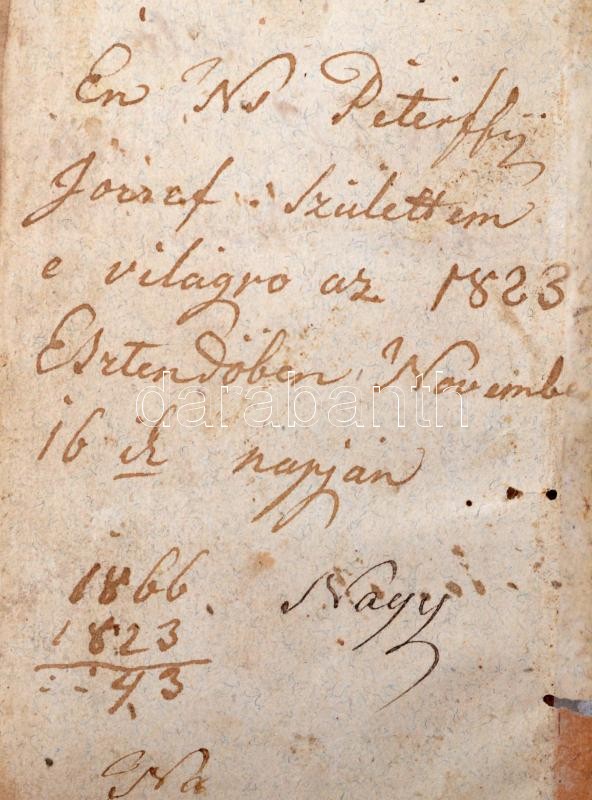 Én Ns Péterffÿ
Jóisef születtem
e világra az 1823
Esztendöben, Novembe
16 ik napján
1866
1823
43
Nagy
Na
darabanth